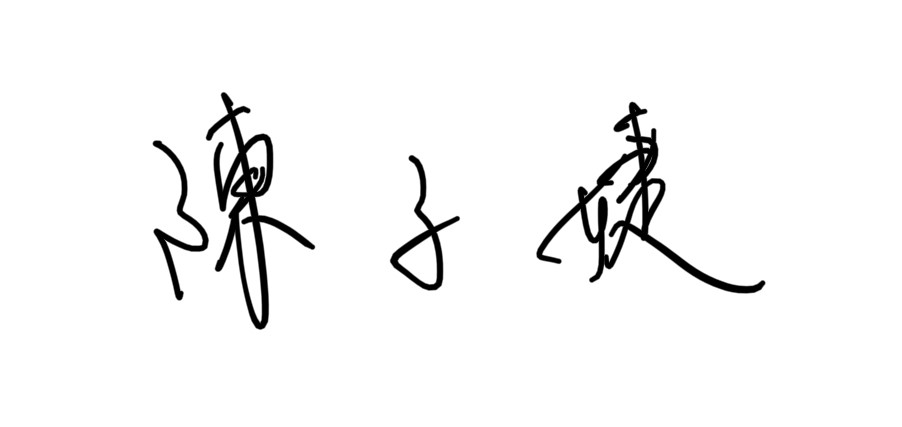 陳子婕